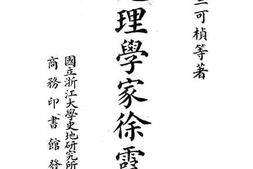 可楨等著
理學家徐霞
國立浙江大學史地研究所
商務印書館發